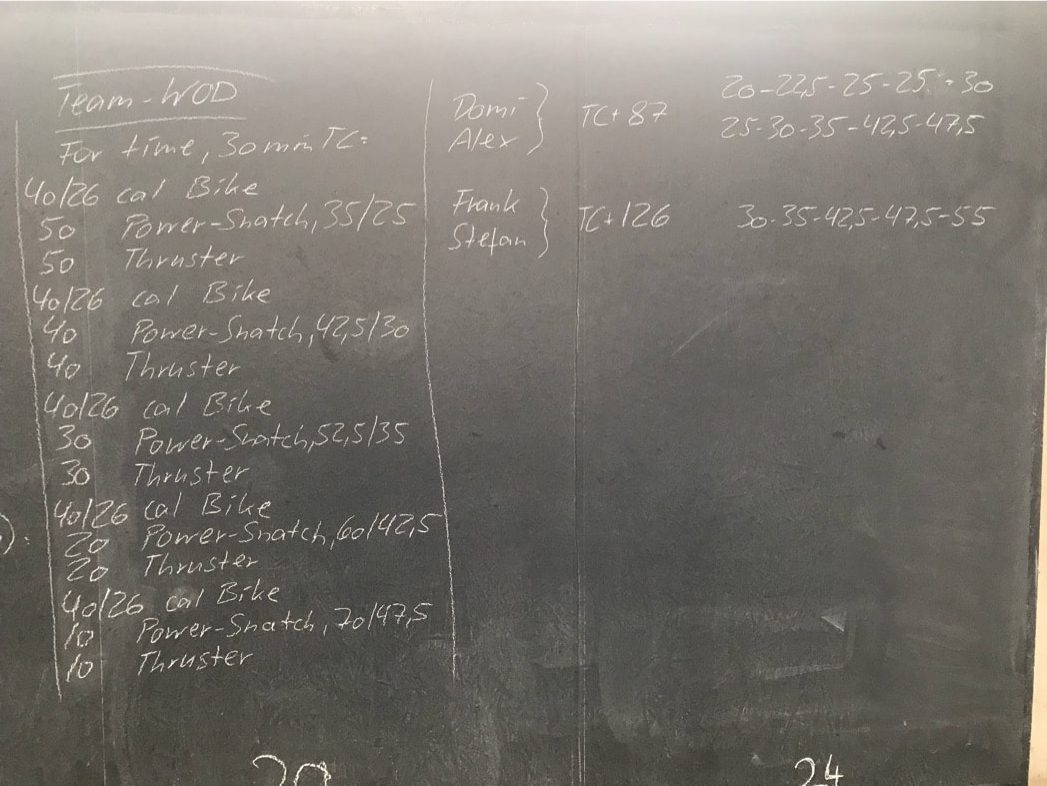 Team-WOD
For time, 30 min TC:
40/26 cal Bike
50 Power-Snatch, 35/25
50 Thruster
40/26 cal Bike
40 Power-Snatch, 42,5/30
40 Thruster
40/26 cal Bike
30 Power-Snatch, 52,5/35
30 Thruster
40/26 cal Bike
20 Power-Snatch, 60/42,5
20 Thruster
40/26 cal Bike
10 Power-Snatch, 70/47,5
10 Thruster
Domi } TC+87 20-22,5-25-25-30
Alex 25-30-35-42,5-47,5
Frank } TC+126 30-35-42,5-47,5-55
Stefan
).
24